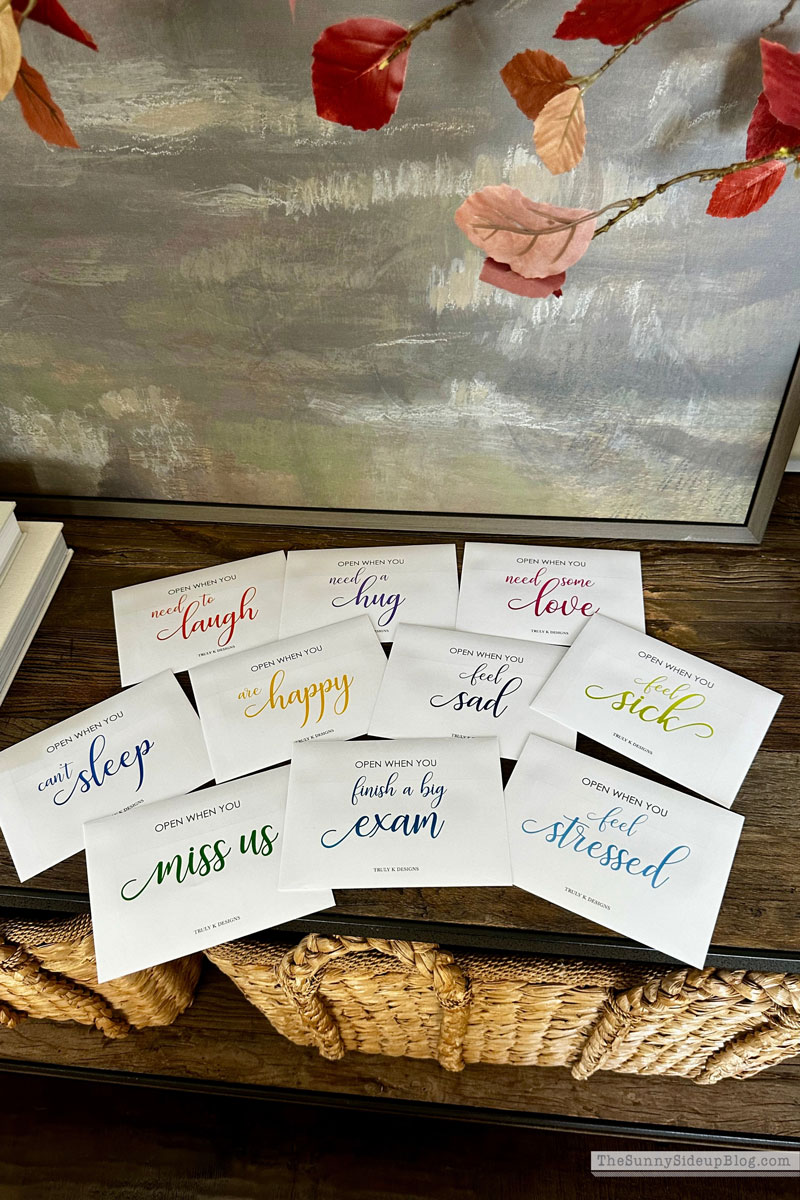 OPEN WHEN YOU
need to
laugh
TRULY K DESIGNS
OPEN WHEN YOU
need a
hug
OPEN WHEN YOU
need some
love
TRULY K DESIGNS
OPEN WHEN YOU
are happy
OPEN WHEN YOU
feel
sad
OPEN WHEN YOU
feel
sick
TRULY K DESIGNS
OPEN WHEN YOU
can't sleep
OPEN WHEN YOU
miss us
TRULY K DESIGNS
OPEN WHEN YOU
finish a big
exam
TRULY K DESIGNS
OPEN WHEN YOU
feel
stressed
TRULY K DESIGNS
TheSunnySideupBlog.com